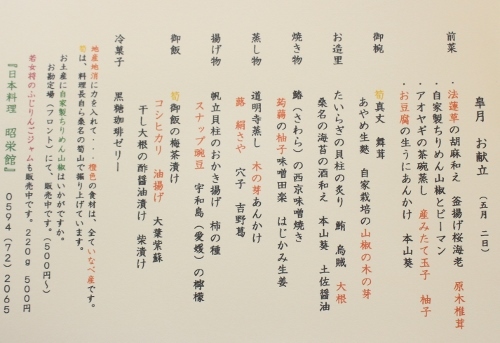 皐月　お献立　（五月　二日）
前菜　・法蓮草の胡麻和え　釜揚げ桜海老　原木椎茸
・自家製ちりめん山椒とピーマン
・アオヤギの茶碗蒸し　産みたて玉子　柚子
・お豆腐の生うにあんかけ　本山葵
御椀　筍真丈　舞茸
あやめ生麩　自家栽培の山椒の木の芽
お造里　たいらぎの貝柱の炙り　鮪　烏賊　大根
桑名の海苔の酒和え　本山葵　土佐醤油
焼き物　鰆（さわら）の西京味噌焼き
蒟蒻の柚子味噌田楽　はじかみ生姜
蒸し物　道明寺蒸し　木の芽あんかけ
蕗　絹さや　穴子　吉野葛
揚げ物　帆立貝柱のおかき揚げ　柿の種
スナップ豌豆　宇和島（愛媛）の檸檬
御飯　筍御飯の梅茶漬け
コシヒカリ　油揚げ　大葉紫蘇
干し大根の酢醤油漬け　柴漬け
冷菓子　黒糖珈琲ゼリー
地産地消に力を入れて・・・橙色の食材は、全ていなべ産です。
筍は、料理長自ら桑名の筍山で掘り上げています。
お土産に自家製ちりめん山椒はいかがですか。
お勘定場（フロント）にて、販売中です。（500円～）
若女将のふじりんごジャムも販売中です。220g　500円
『日本料理　昭栄館』　0594（72）2065